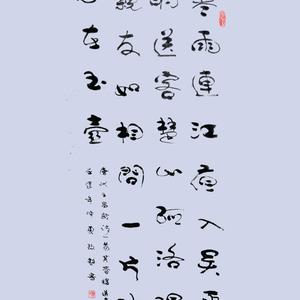 寒雨連江夜入吳
明送客楚山孤洛
親友如相問一片
心在玉壺
唐代王昌齡詩一首芙蓉樓送